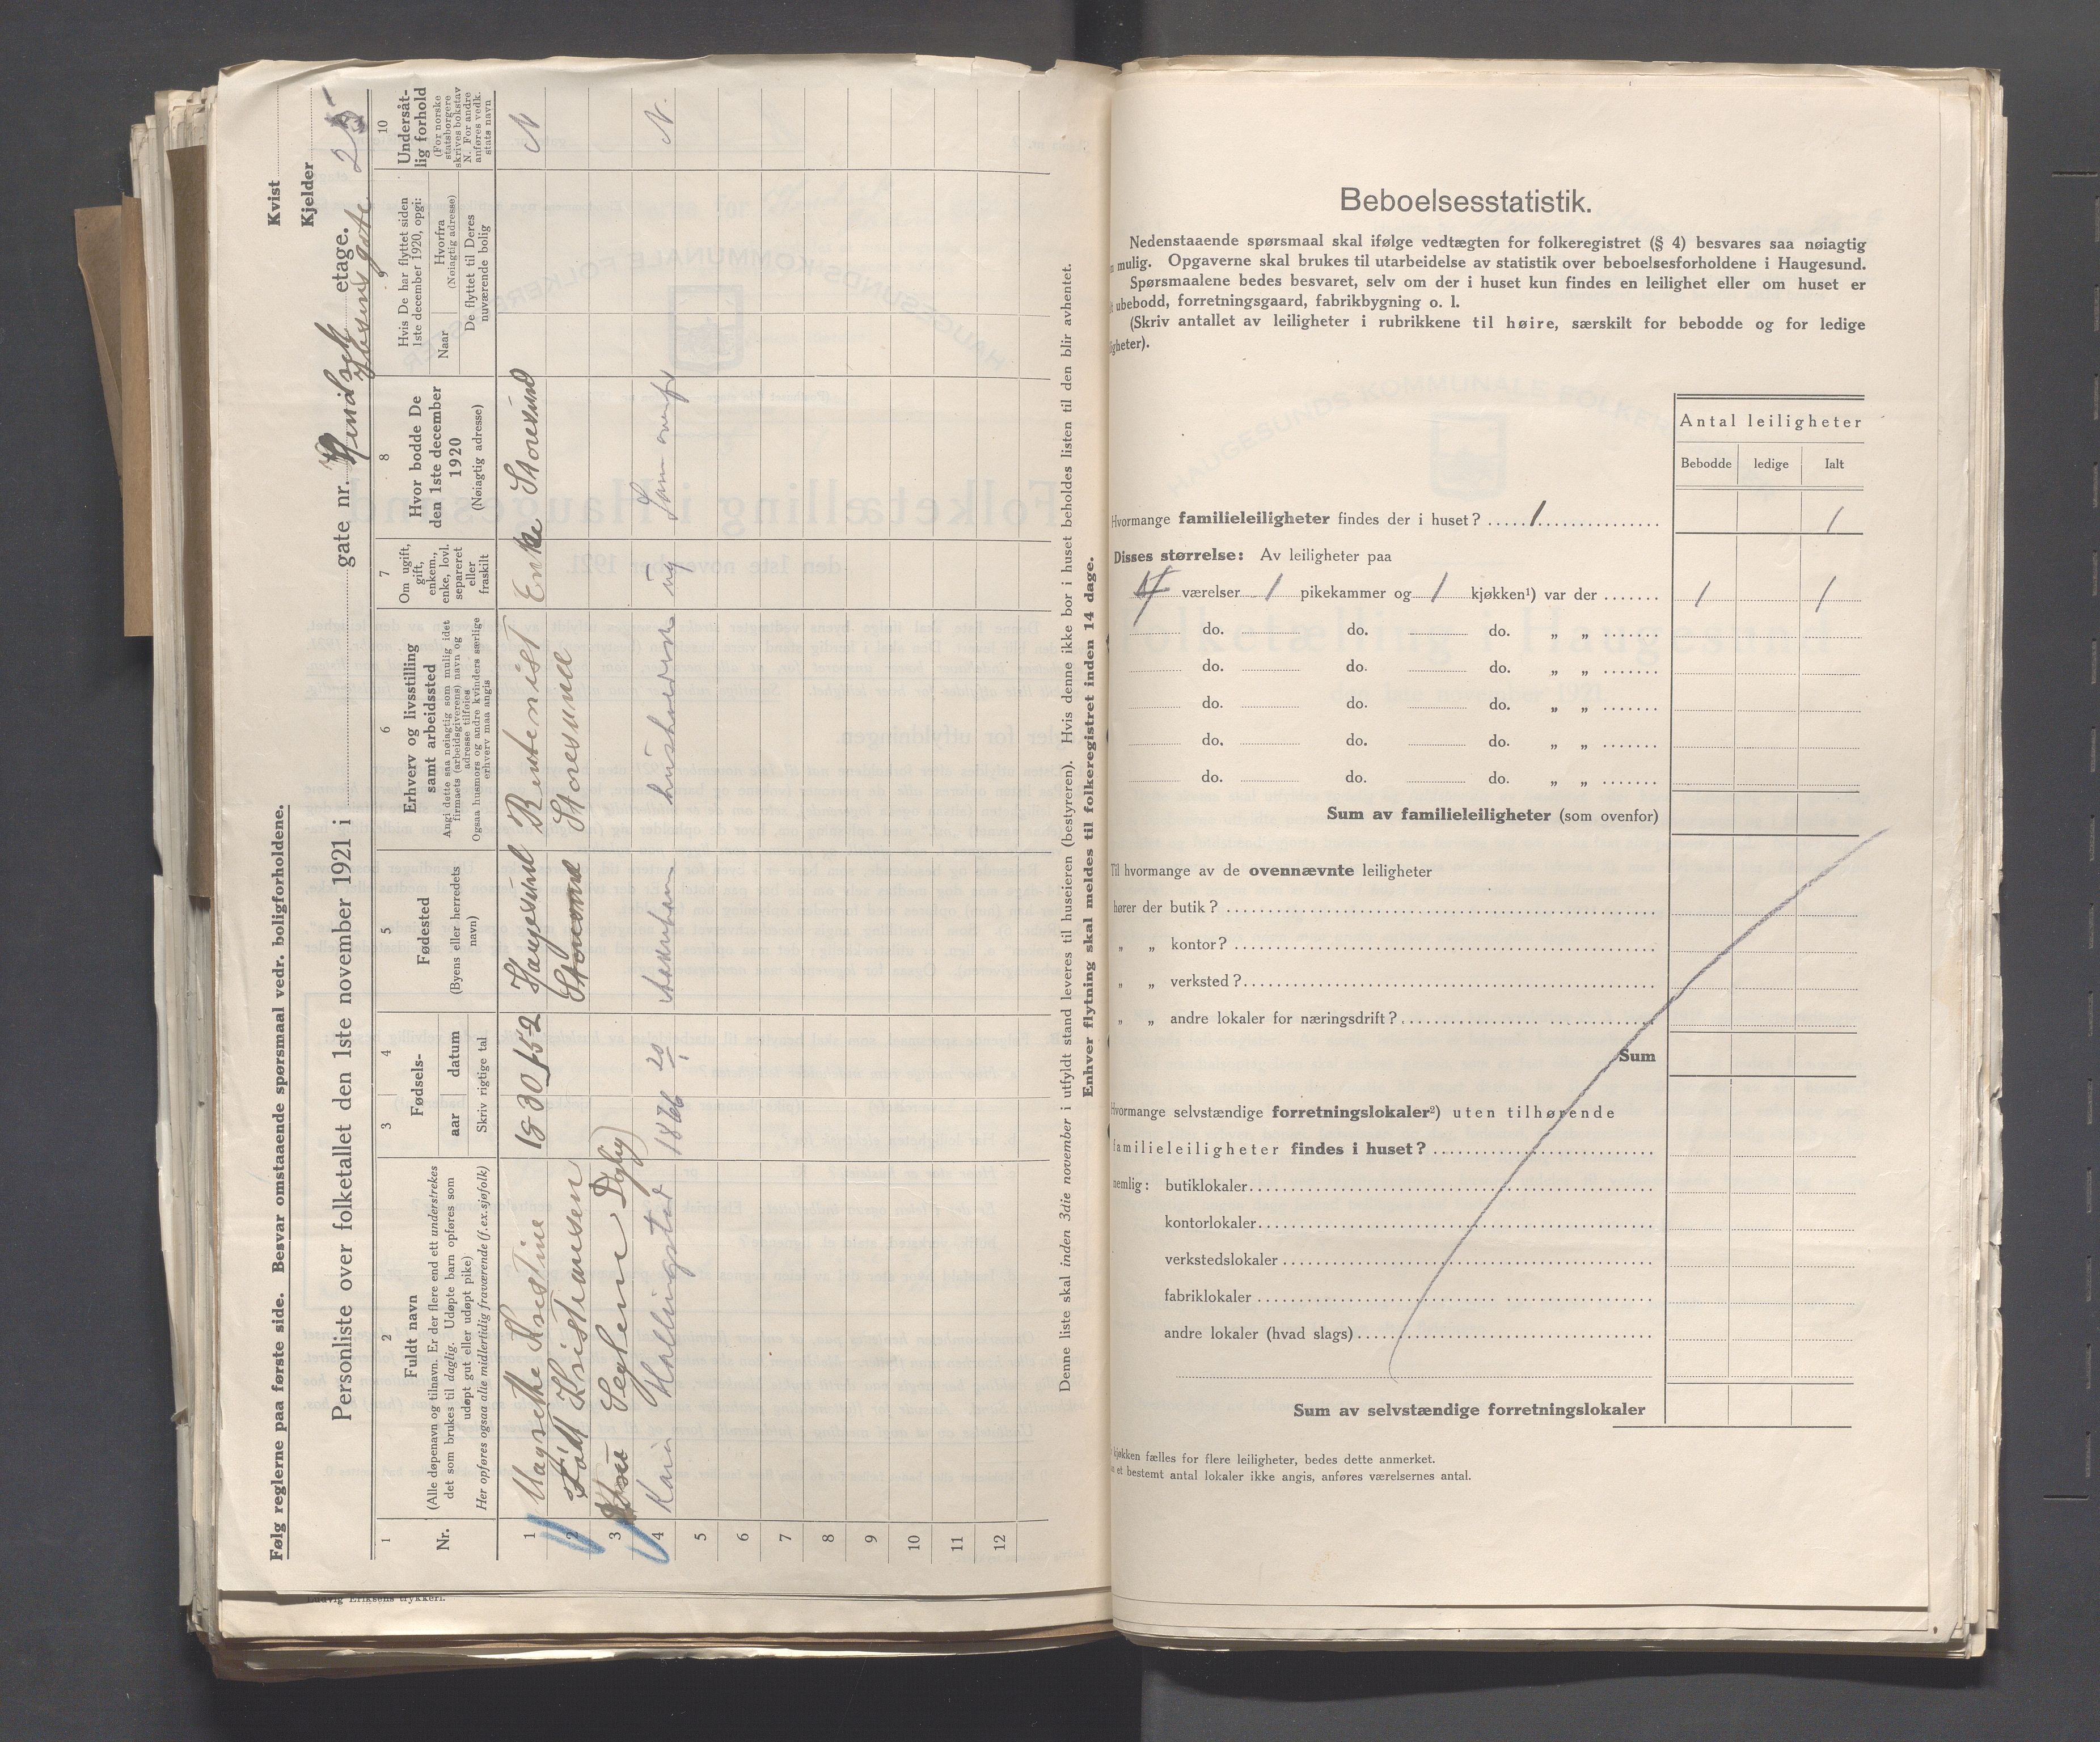 Følg reglerne paa første side. Besvar omstaaende spørsmaal vedr. boligforholdene.
Kvist
Kjelder
Personliste over folketallet den 1ste november 1921 i gate nr. etage.
Hendrek Ibsens gate 25
1 2 3 4 5 6 7 8 9 10
Nr.
Fuldt navn
(Alle døpenavn og tilnavn. Er der flere end ett understrekes
det som brukes til daglig. Udøpte barn opføres som
udøpt gut eller udøpt pike)
Her opføres ogsaa alle midlertidig fraværende (f.ex. sjøfolk)
Fødsels-
aar datum
Skriv rigtige tal
Fødested
(Byens eller herredets
navn)
Erhverv og livsstilling
samt arbeidssted
Angi dette saa nøiagtig som mulig idet
firmaets (arbeidsgiverens) navn og
adresse tilføies
Ogsaa husmors og andre kvinders særlige
erhverv maa angis
Om ugift,
gift,
enkem.,
enke, lovl.
separeret
eller
fraskilt
Hvor bodde De
den 1ste december
1920
(Nøiagtig adresse)
Hvis De har flyttet siden
1ste december 1920, opgi:
Naar
Hvorfra
(Nøiagtig adresse)
De flyttet til Deres
nuværende bolig
Undersåt-
lig forhold
(For norske
statsborgere
skrives bokstav
N. For andre
anføres vedk.
stats navn
1 Magrethe Kristine Haugesund Rentenist Enke Storesund N
2 Født Kristiansen Storesund Storesund
3
4 Kari Hallingstad 1866 husholderske ug Som ovenfor N.
5
6
7
8
9
10
11
12
Denne liste skal inden 3die november i utfyldt stand leveres til huseieren (bestyreren). Hvis denne ikke bor i huset beholdes listen til den blir avhentet.
Enhver flytning skal meldes til folkeregistret inden 14 dage.
Ludvig Eriksens trykkeri.
Beboelsesstatistik.
Nedenstaaende spørsmaal skal ifølge vedtægten for folkeregistret (§ 4) besvares saa nøiagtig
mulig. Opgaverne skal brukes til utarbeidelse av statistik over beboelsesforholdene i Haugesund.
Spørsmaalene bedes besvaret, selv om der i huset kun findes en leilighet eller om huset er
ubebodd, forretningsgaard, fabrikbygning o. l.
(Skriv antallet av leiligheter i rubrikkene til høire, særskilt for bebodde og for ledige
igheter).
Antal leiligheter
Bebodde ledige Ialt
Hvormange familieleiligheter findes der i huset? 1 1
Disses størrelse: Av leiligheter paa
værelser 1 pikekammer og 1 kjøkken¹) var der 1 1
do. do. do. „ „
do. do. do. „ „
do. do. do. „ „
do. do. do. „ „
do. do. do. „ „
Sum av familieleiligheter (som ovenfor)
Til hvormange av de ovennævnte leiligheter
hører der butik?
„ „ kontor?
„ „ verksted?
„ „ andre lokaler for næringsdrift?
Sum
Hvormange selvstændige forretningslokaler²) uten tilhørende
familieleiligheter findes i huset?
nemlig: butiklokaler
kontorlokaler
verkstedslokaler
fabriklokaler
andre lokaler (hvad slags)
Sum av selvstændige forretningslokaler
kjøkken fælles for flere leiligheter, bedes dette anmerket.
et bestemt antal lokaler ikke angis, anføres værelsernes antal.